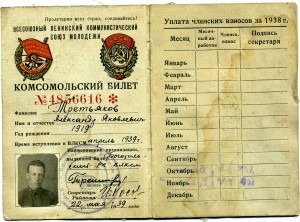 Пролетарии всех стран, соединяйтесь!
ВСЕСОЮЗНЫЙ ЛЕНИНСКИЙ КОММУНИСТИЧЕСКИЙ
СОЮЗ МОЛОДЕЖИ
КОМСОМОЛЬСКИЙ БИЛЕТ
№4856616
Фамилия Третьяков
Имя и отчество Александр Яковлевич
Год рождения 1919
Время вступления в ВЛКСМ апрель 1939г.
Наименование организации,
выдавшей билет
Секретарь
Райкома
22 мая 39
Уплата членских взносов за 1938 г.
Месяц
Месячный заработок
Членск. взнос
Подпись секретаря
Январь
Февраль
Март
Апрель
Май
Июнь
Июль
Август
Сентябрь
Октябрь
Ноябрь
Декабрь